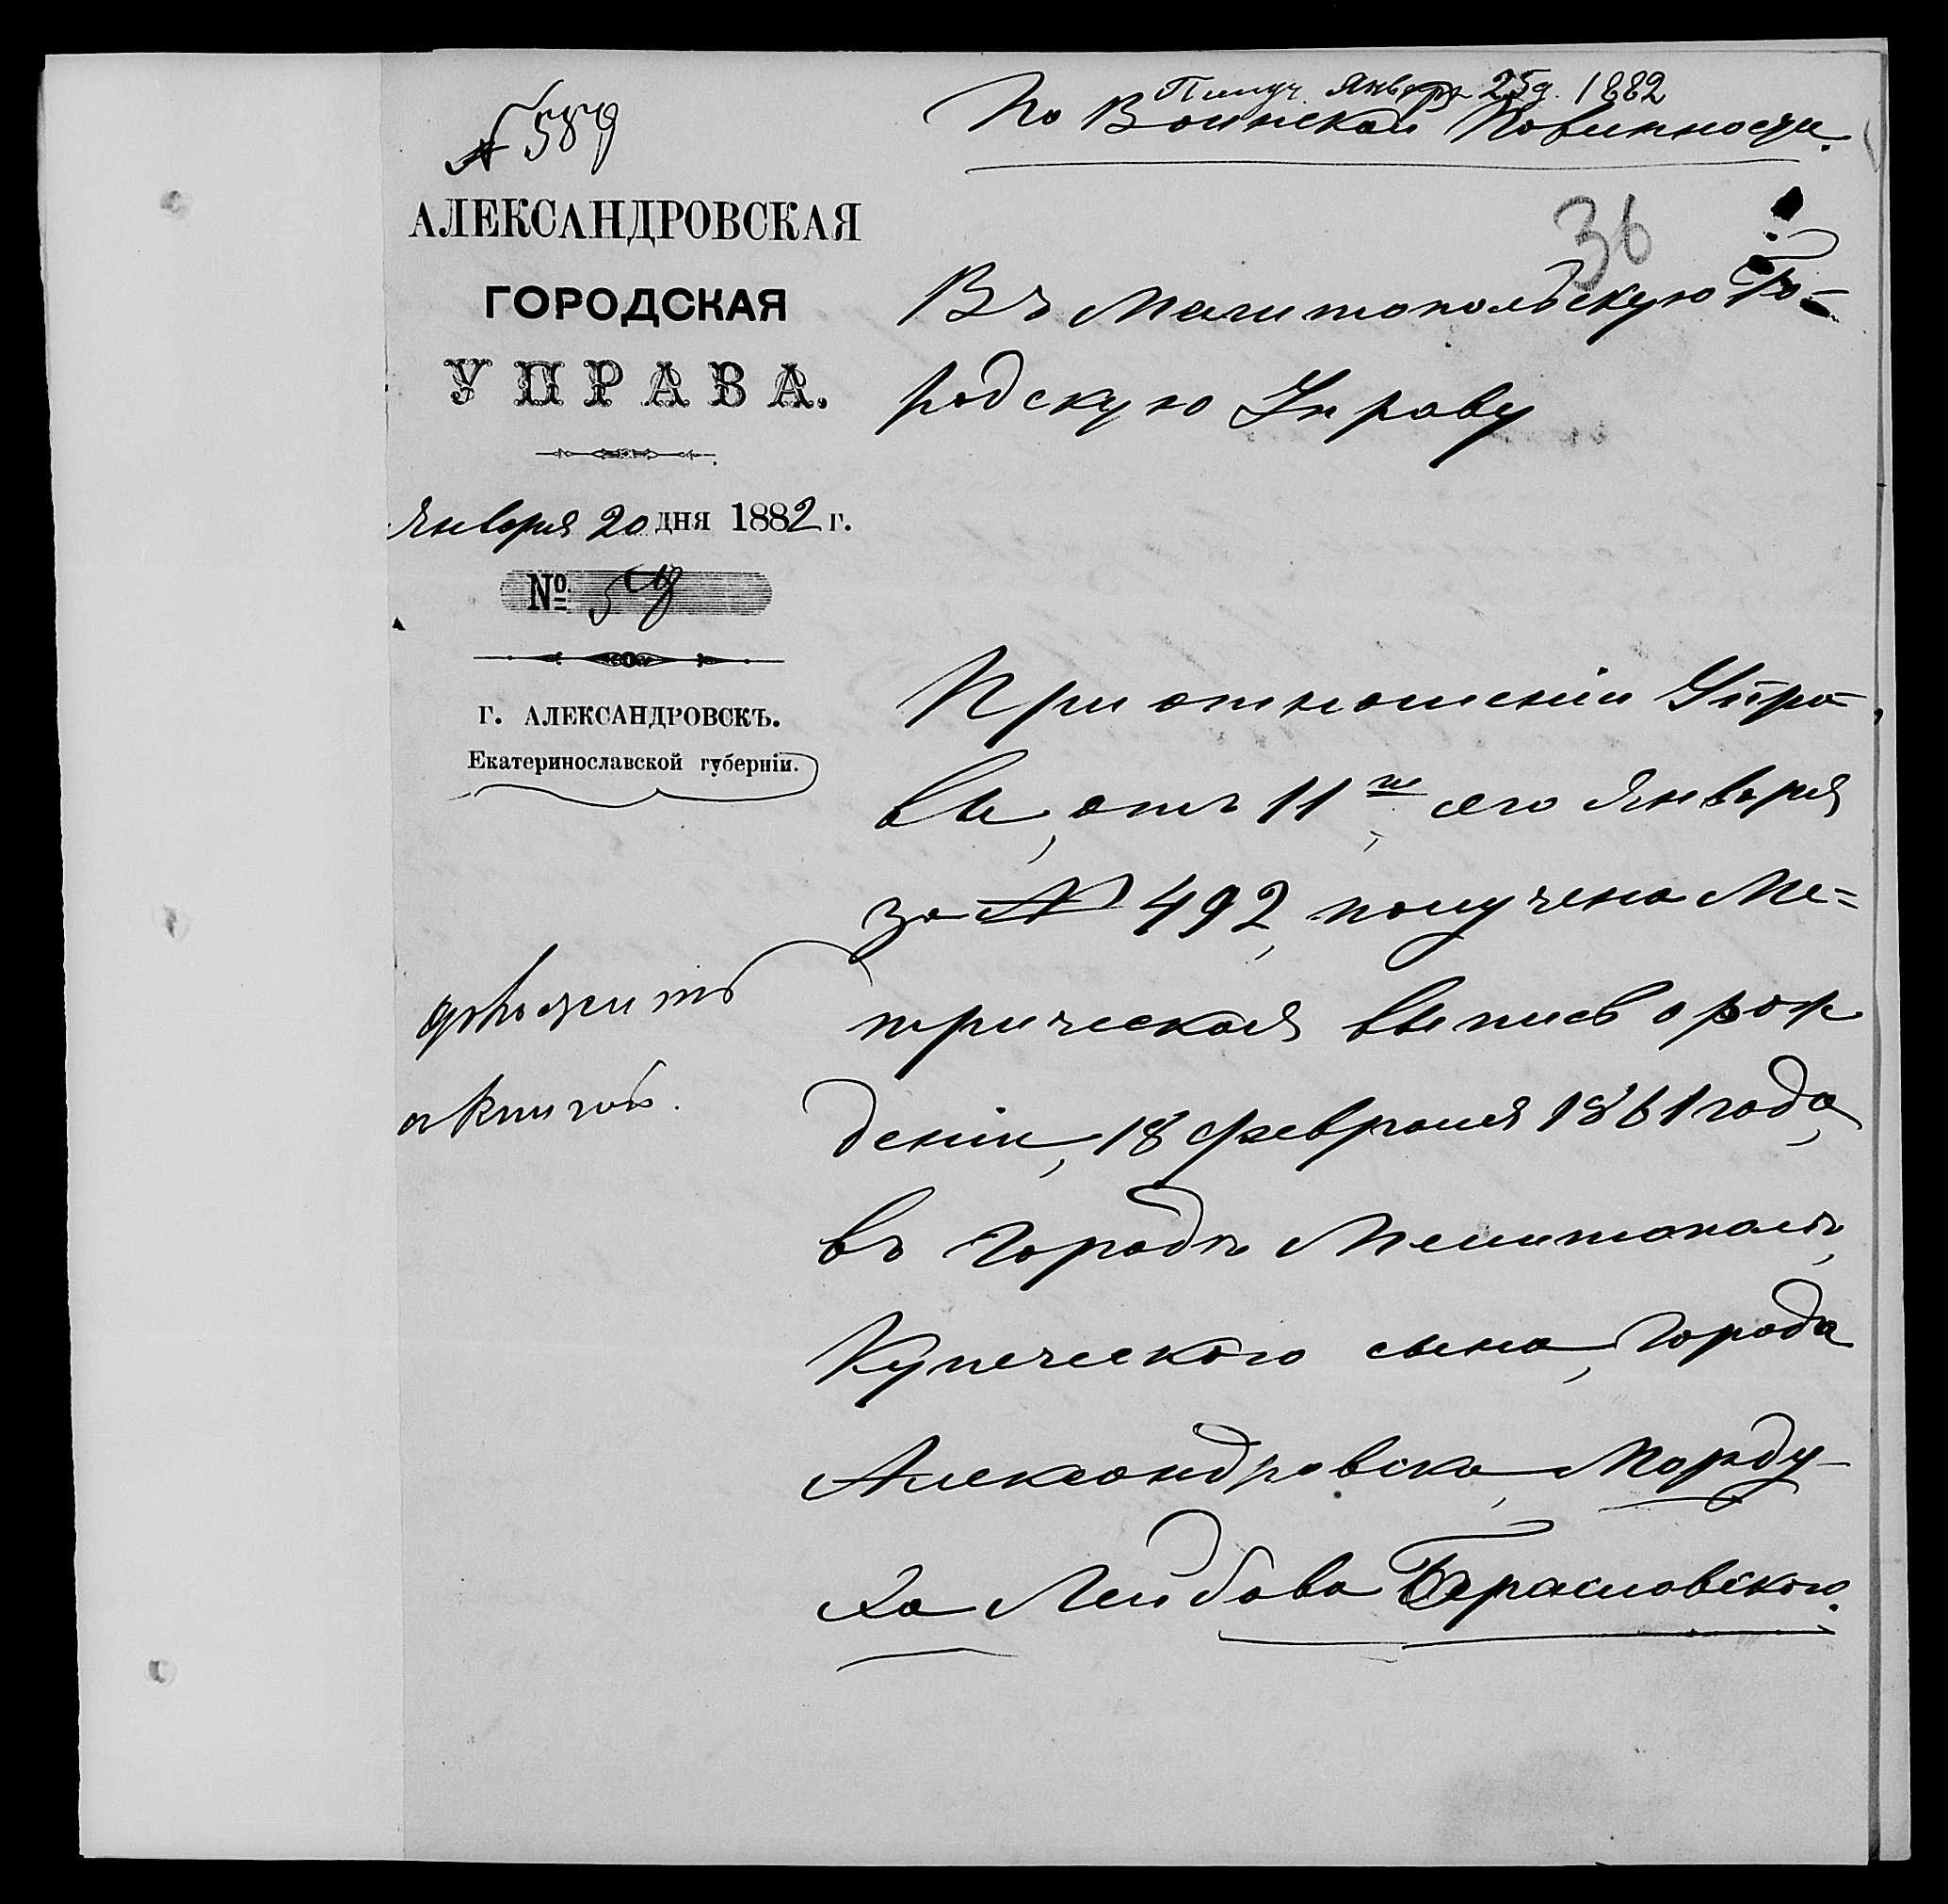 № 589
АЛЕКСАНДРОВСКАЯ
ГОРОДСКАЯ
УПРАВА.
Января 20 ДНЯ 1882 г.
№
г. АЛЕКСАНДРОВСКЪ.
Екатеринославской губерніи.
Получ. Января 25 д. 1882
По Воинской Повинности.
36
Въ Мелитопольскую Го-
родскую Управу
При отношеніи Упра-
вы, отъ 11го сего Января
за № 492, получена Ме=
трическая выпись о рож
деніи, 18 Февраля 1861 года,
въ Городѣ Мелитополѣ,
Купеческого сына, Города
Александровска, Морду-
ха Лейбова Браиловского.